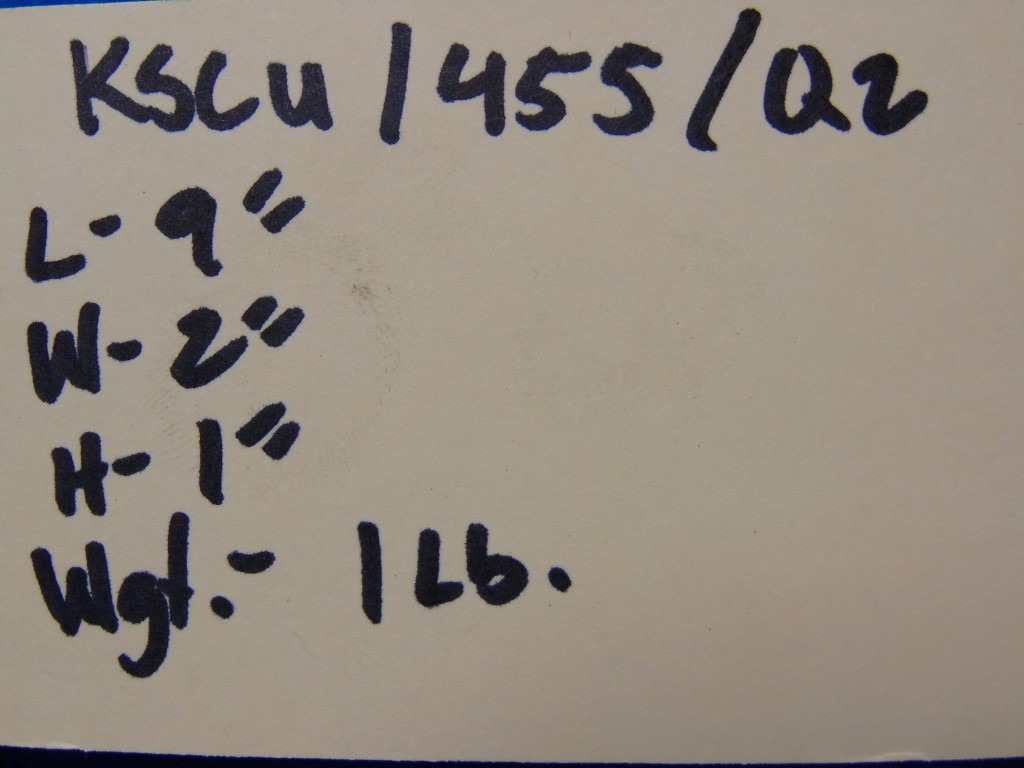 KSCU/455/Q2
L- 9"
W- 2"
H- 1"
Wgt.- 1 Lb.